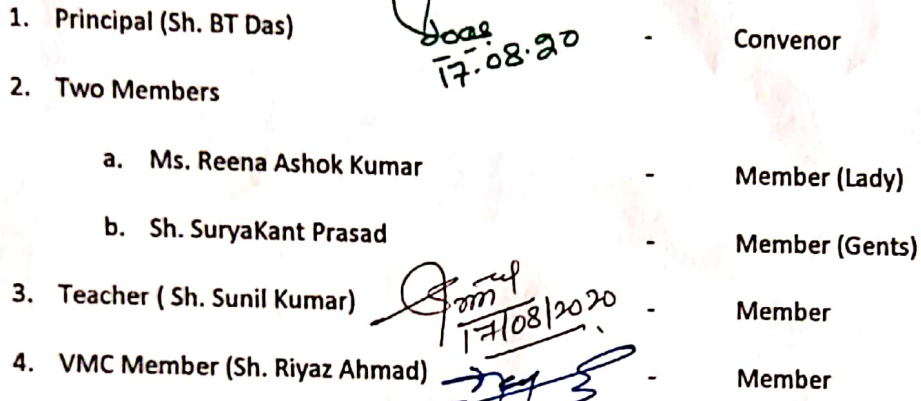 1. Principal (Sh. BT Das) - Convenor
17.08.20
2. Two Members
a. Ms. Reena Ashok Kumar - Member (Lady)
b. Sh. SuryaKant Prasad - Member (Gents)
3. Teacher ( Sh. Sunil Kumar) - Member
17/08/2020
4. VMC Member (Sh. Riyaz Ahmad) - Member